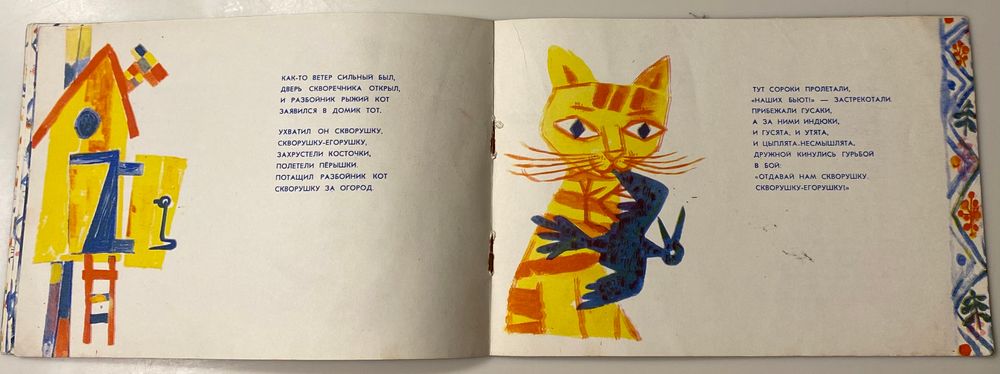 КАК-ТО ВЕТЕР СИЛЬНЫЙ БЫЛ,
ДВЕРЬ СКВОРЕЧНИКА ОТКРЫЛ,
И РАЗБОЙНИК РЫЖИЙ КОТ
ЗАЯВИЛСЯ В ДОМИК ТОТ.
УХВАТИЛ ОН СКВОРУШКУ,
СКВОРУШКУ-ЕГОРУШКУ,
ЗАХРУСТЕЛИ КОСТОЧКИ,
ПОЛЕТЕЛИ ПЁРЫШКИ.
ПОТАЩИЛ РАЗБОЙНИК КОТ
СКВОРУШКУ ЗА ОГОРОД.
ТУТ СОРОКИ ПРОЛЕТАЛИ,
«НАШИХ БЬЮТ!» — ЗАСТРЕКОТАЛИ.
ПРИБЕЖАЛИ ГУСАКИ,
А ЗА НИМИ ИНДЮКИ,
И ГУСЯТА, И УТЯТА,
И ЦЫПЛЯТА-НЕСМЫШЛЯТА,
ДРУЖНОЙ КИНУЛИСЬ ГУРЬБОЙ
В БОЙ:
«ОТДАВАЙ НАМ СКВОРУШКУ.
СКВОРУШКУ-ЕГОРУШКУ!»